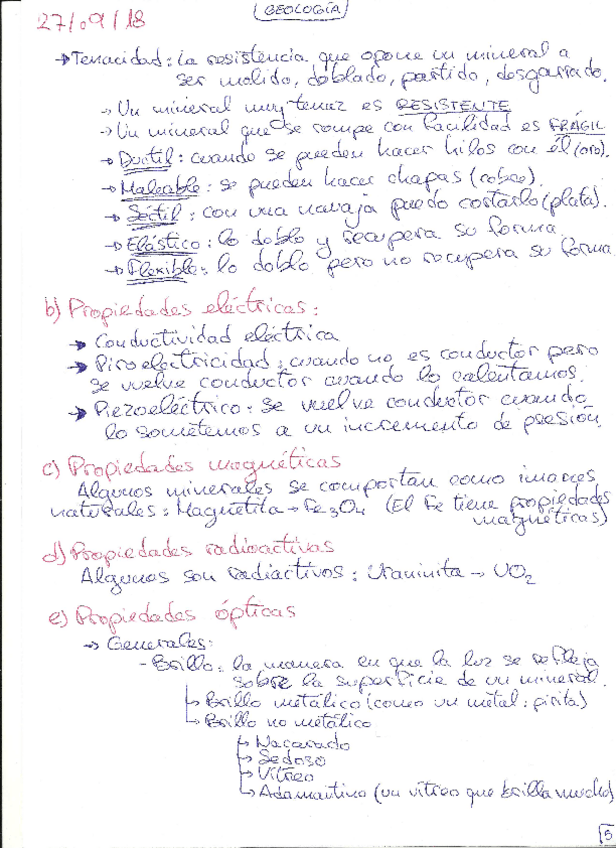 GEOLOGÍA
27/09/18
→ Tenacidad: la resistencia que opone un mineral a
ser molido, doblado, partido, desgarrado.
→ Un mineral muy tenaz es RESISTENTE
→ Un mineral que se rompe con facilidad es FRÁGIL
→ Dúctil: cuando se pueden hacer hilos con él (oro).
→ Maleable: se pueden hacer chapas (cobre).
→ Séctil: con una navaja puedo cortarlo (plata).
→ Elástico: lo doblo y recupera su forma.
→ Flexible: lo doblo pero no recupera su forma
b) Propiedades eléctricas:
→ Conductividad eléctrica
→ Piroelectricidad: cuando no es conductor pero
se vuelve conductor cuando lo calentamos.
→ Piezoeléctrico: se vuelve conductor cuando
lo sometemos a un incremento de presión.
c) Propiedades magnéticas
Algunos minerales se comportan como imanes
naturales: Magnetita → Fe3O4 (El Fe tiene propiedades
magnéticas)
d) Propiedades radioactivas
Algunos son radiactivos: Uraninita → UO2
e) Propiedades ópticas
→ Generales:
- Brillo: la manera en que la luz se refleja
sobre la superficie de un mineral.
↳ Brillo metálico (como un metal: pirita)
↳ Brillo no metálico
↳ Nacarado
↳ Sedoso
↳ Vítreo
↳ Adamantino (un vítreo que brilla mucho)
5